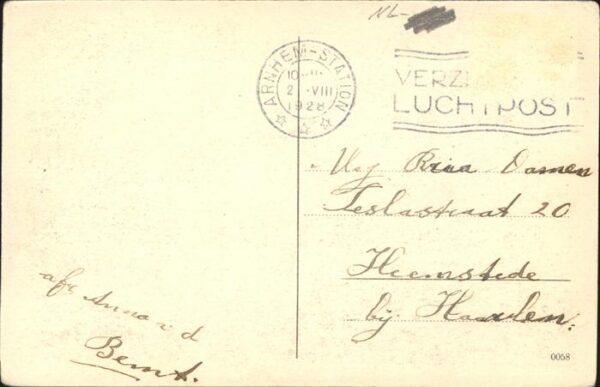 NL-
ARNHEM-STATION
10
2 .VIII
1928
VERZ
LUCHTPOST
Damen
Teslastraat 20
Heemstede
bij Haarlem.
afz Anna v d
Bemt.
0058